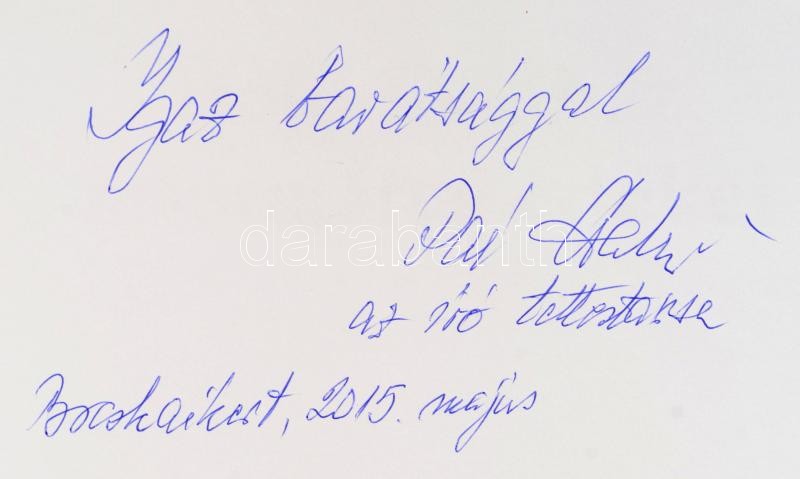 Igaz barátsággal
Pál
az író tettestársa
Bocskaikert, 2015. május
darabanth